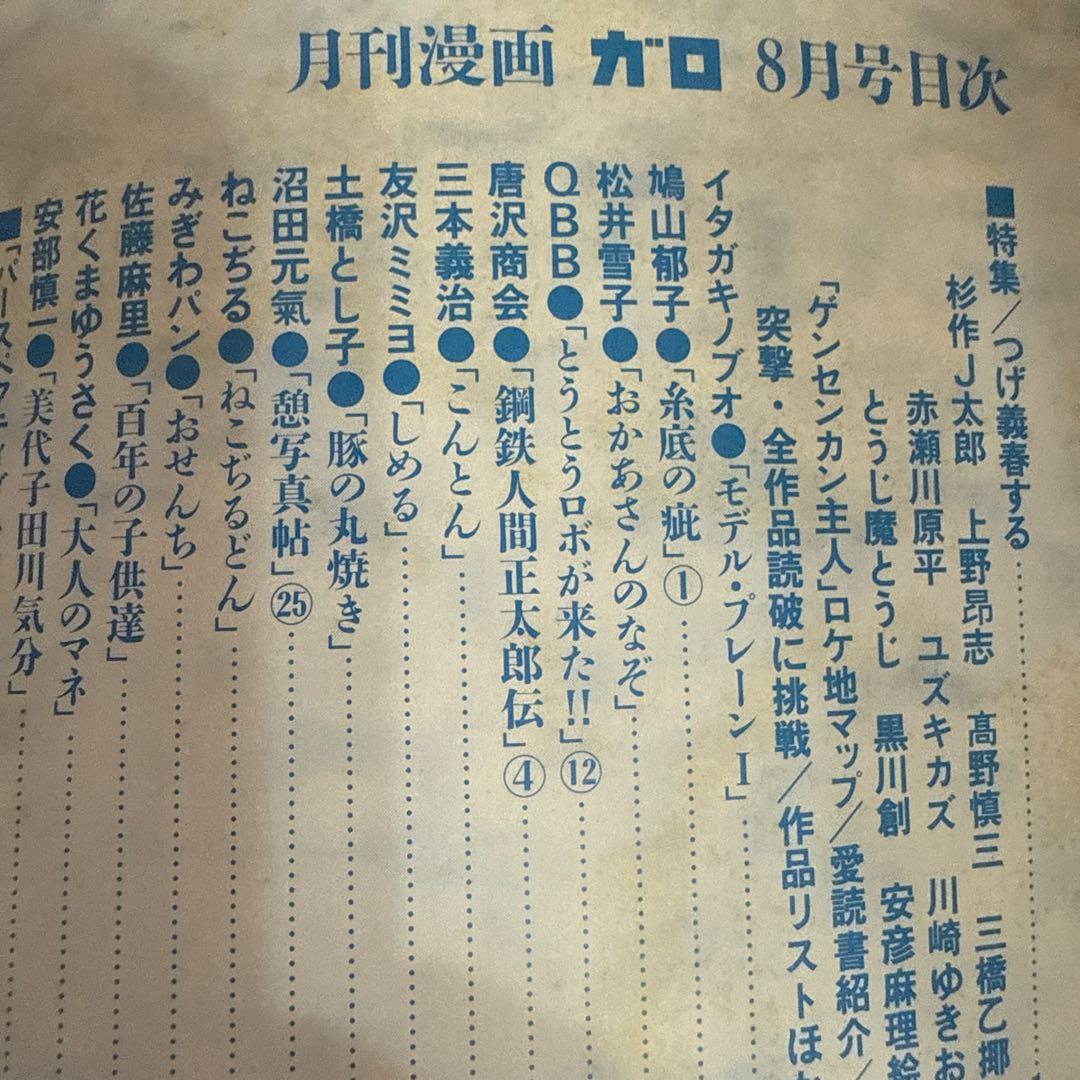 月刊漫画 ガロ 8月号目次
■特集/つげ義春する
杉作J太郎 上野昂志 高野慎三 三橋乙揶
赤瀬川原平 ユズキカズ 川崎ゆきお
とうじ魔とうじ 黒川創 安彦麻理絵
「ゲンセンカン主人」ロケ地マップ/愛読書紹介/
突撃・全作品読破に挑戦/作品リストほか
イタガキノブオ●「モデル・プレーンⅠ」
鳩山郁子●「糸底の疵」①
松井雪子●「おかあさんのなぞ」
QBB●「とうとうロボが来た!!」⑫
唐沢商会●「鋼鉄人間正太郎伝」④
三本義治●「こんとん」
友沢ミミヨ●「しめる」
土橋とし子●「豚の丸焼き」
沼田元氣●「憩写真帖」㉕
ねこぢる●「ねこぢるどん」
みぎわパン●「おせんち」
佐藤麻里●「百年の子供達」
花くまゆうさく●「大人のマネ」
安部慎一●「美代子田川気分」
■「パースペクティブ